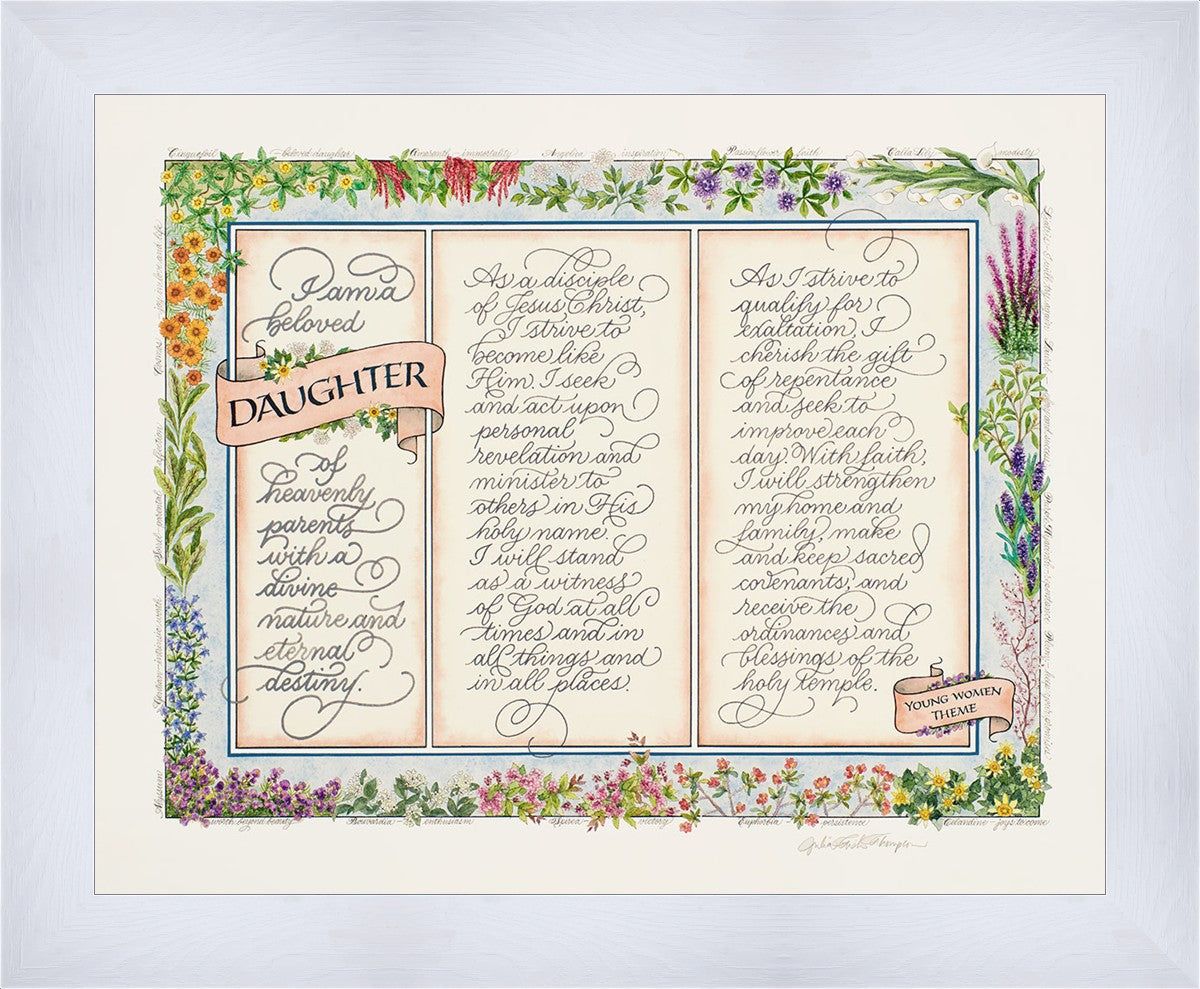 Cinquefoil – beloved daughter
Amaranth – immortality
Angelica – inspiration
Passionflower – faith
Calla Lily – modesty
I am a
beloved
DAUGHTER
of
heavenly
parents
with a
divine
nature and
eternal
destiny.
As a disciple
of Jesus Christ,
I strive to
become like
Him. I seek
and act upon
personal
revelation and
minister to
others in His
holy name.
I will stand
as a witness
of God at all
times and in
all things and
in all places.
As I strive to
qualify for
exaltation, I
cherish the gift
of repentance
and seek to
improve each
day. With faith,
I will strengthen
my home and
family, make
and keep sacred
covenants, and
receive the
ordinances and
blessings of the
holy temple.
YOUNG WOMEN
THEME
Cosmos
Sorel – parental affection
Alyssum – worth beyond beauty
Bouvardia – enthusiasm
Spirea – victory
Euphorbia – persistence
Celandine – joys to come